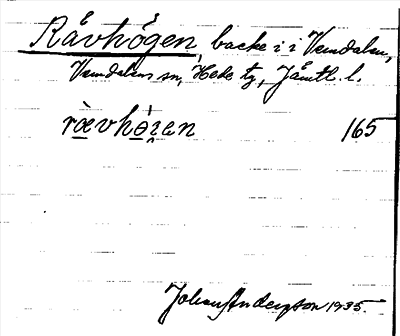 Råvhögen, backe i i Vemdalen,
Vemdalens sn, Hede tg, Jämtl. l.
ræ̀vhø̀gɛn 165
Johan Anderzson 1935.